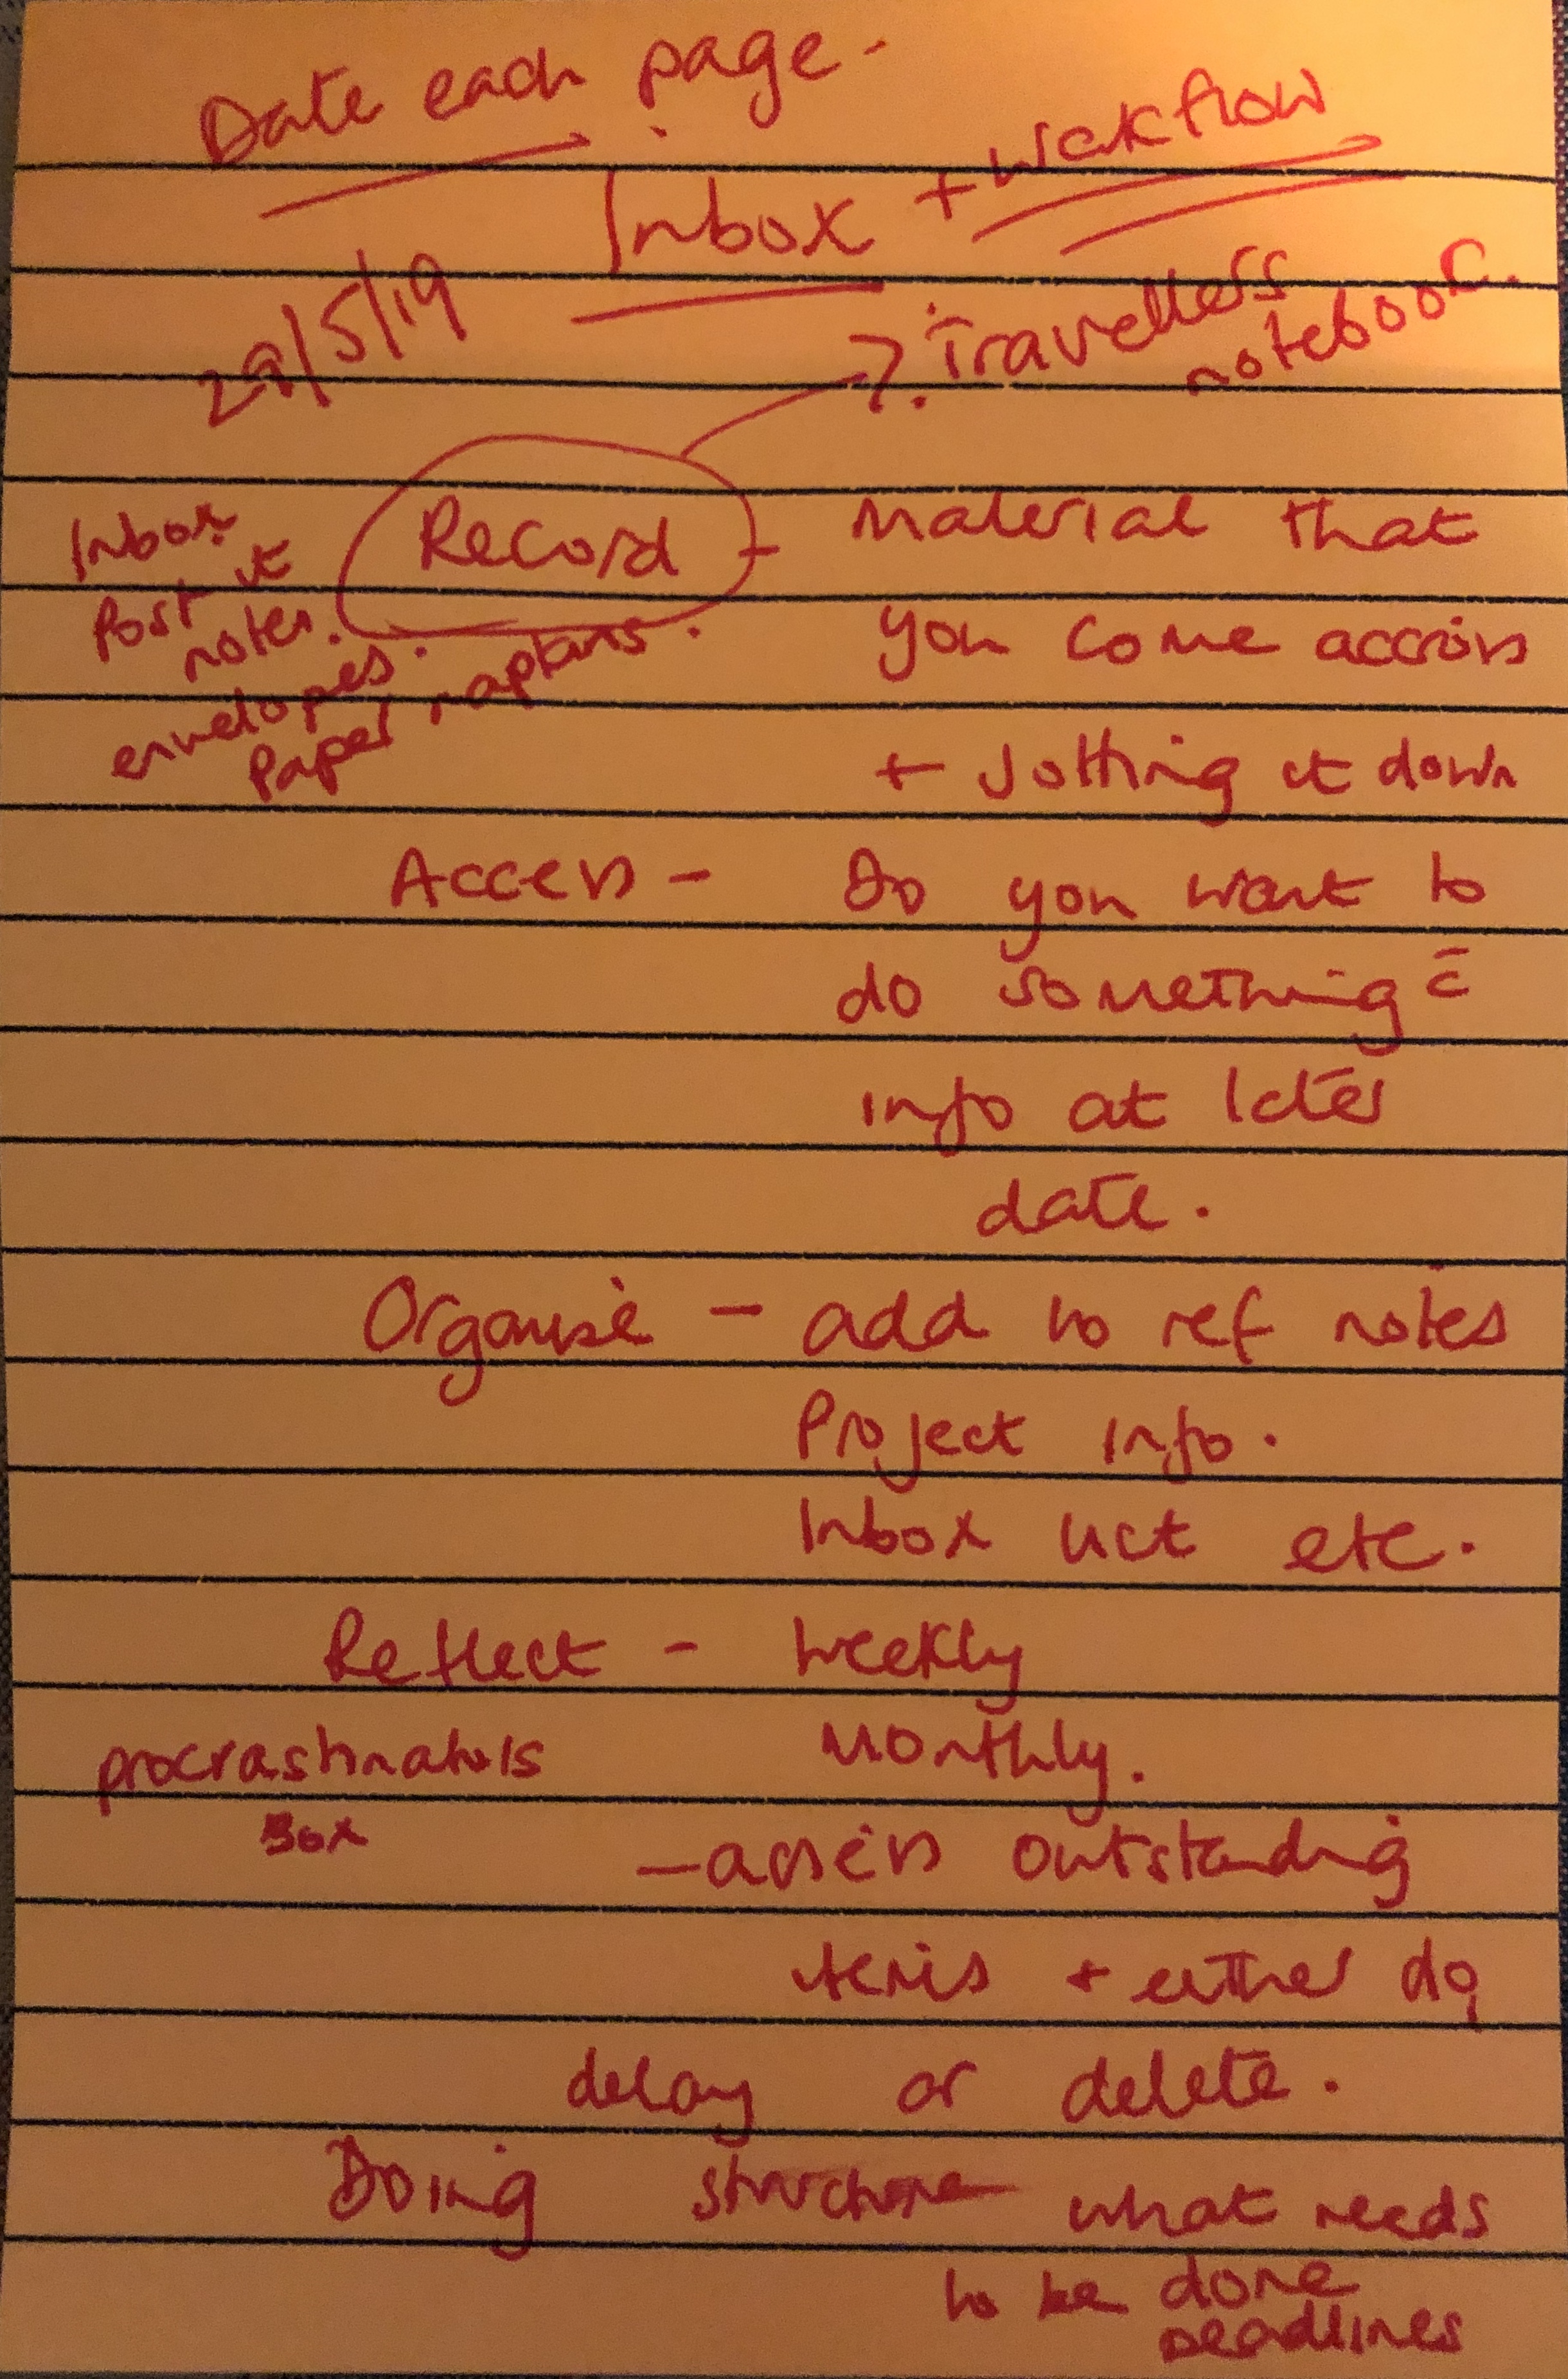 Date each page.
Inbox + Workflow
29/5/19
Travellers
notebook.
Inbox
Post it
notes.
envelopes.
Paper napkins.
Record - Material that
you come accross
+ Jotting it down
Access - Do you want to
do something c̄
info at later
date.
Organise - add to ref notes
Project Info.
Inbox list etc.
Reflect - Weekly
Monthly.
procrastinators
Box
- assess outstanding
items + either do,
delay or delete.
Doing structure what needs
to be done
deadlines